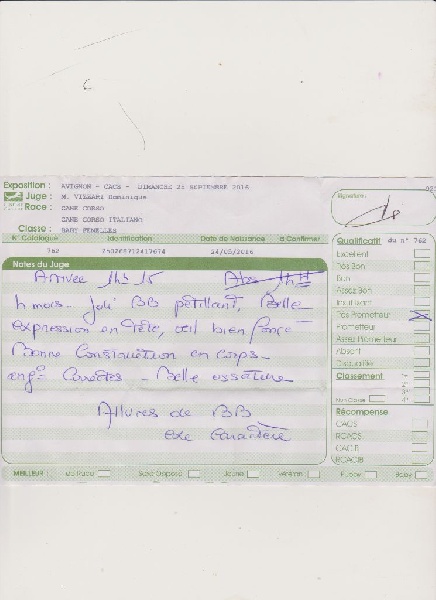 Exposition : AVIGNON - CACS - DIMANCHE 25 SEPTEMBRE 2016
Juge : M. Dominique
Race : CANE CORSO
CANE CORSO ITALIANO
Classe : BABY FEMELLES
N° Catalogue Identification Date de Naissance à Confirmer
762 24/05/2016
Signature :
Qualificatif du n° 762
Excellent
Très Bon
Bon
Assez Bon
Insuffisant
Très Prometteur
Prometteur
Assez Prometteur
Absent
Disqualifié
Classement
Non Classé
Récompense
CACS
RCACS
CACIB
RCACIB
Notes du Juge
Arrivée 14h15
4 mois. Joli BB pétillant, Belle
expression en tête, œil bien foncé
Bonne Construction en corps.
ang° Correctes - Belle ossature
Allures de BB
exc caractère
MEILLEUR : de Race Sexe Opposé Jeune Vétéran Puppy Baby